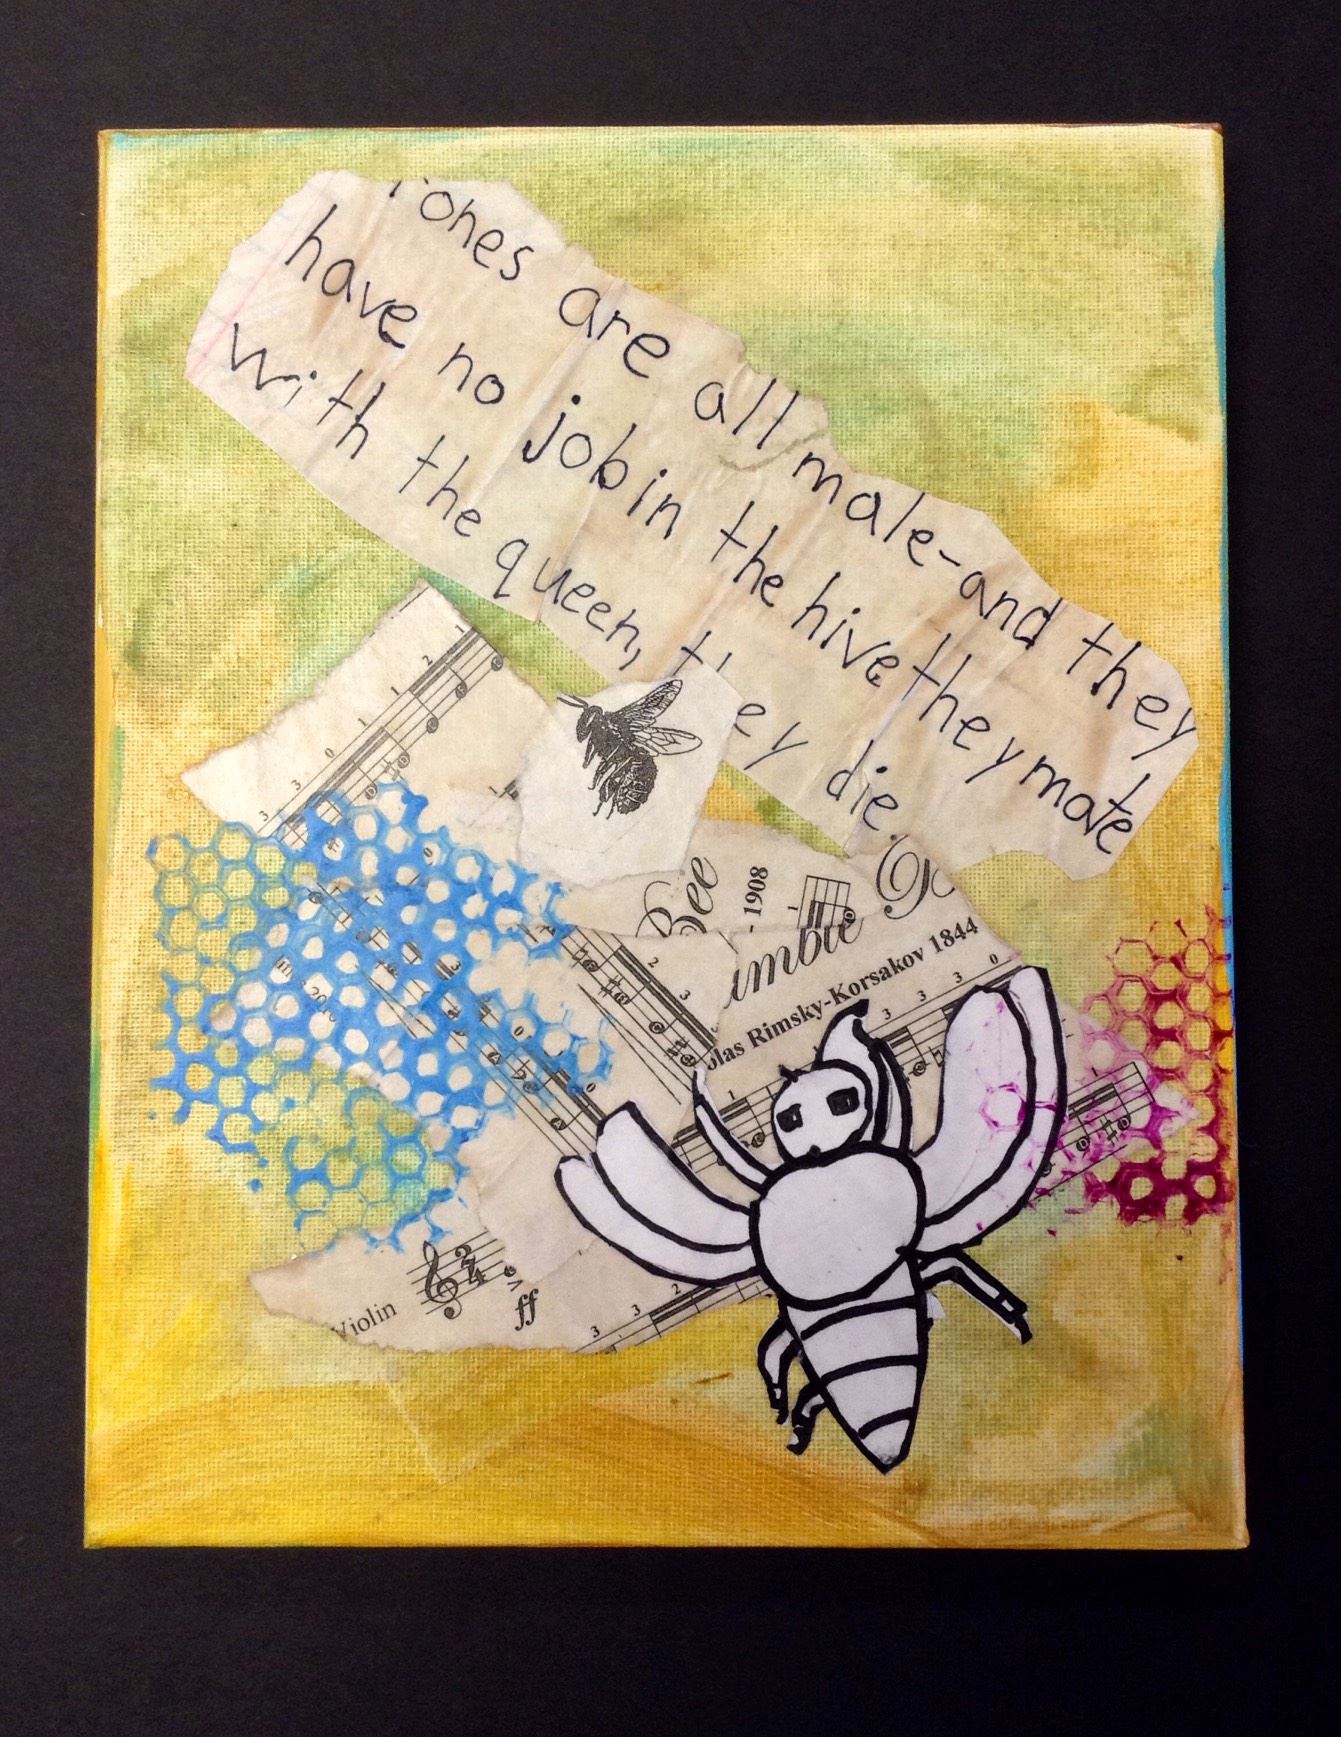 rones are all male-and they
have no job in the hive they mate
with the queen, they die.
Bee
- 1908
umble
Nicolas Rimsky-Korsakov 1844
Violin
ff